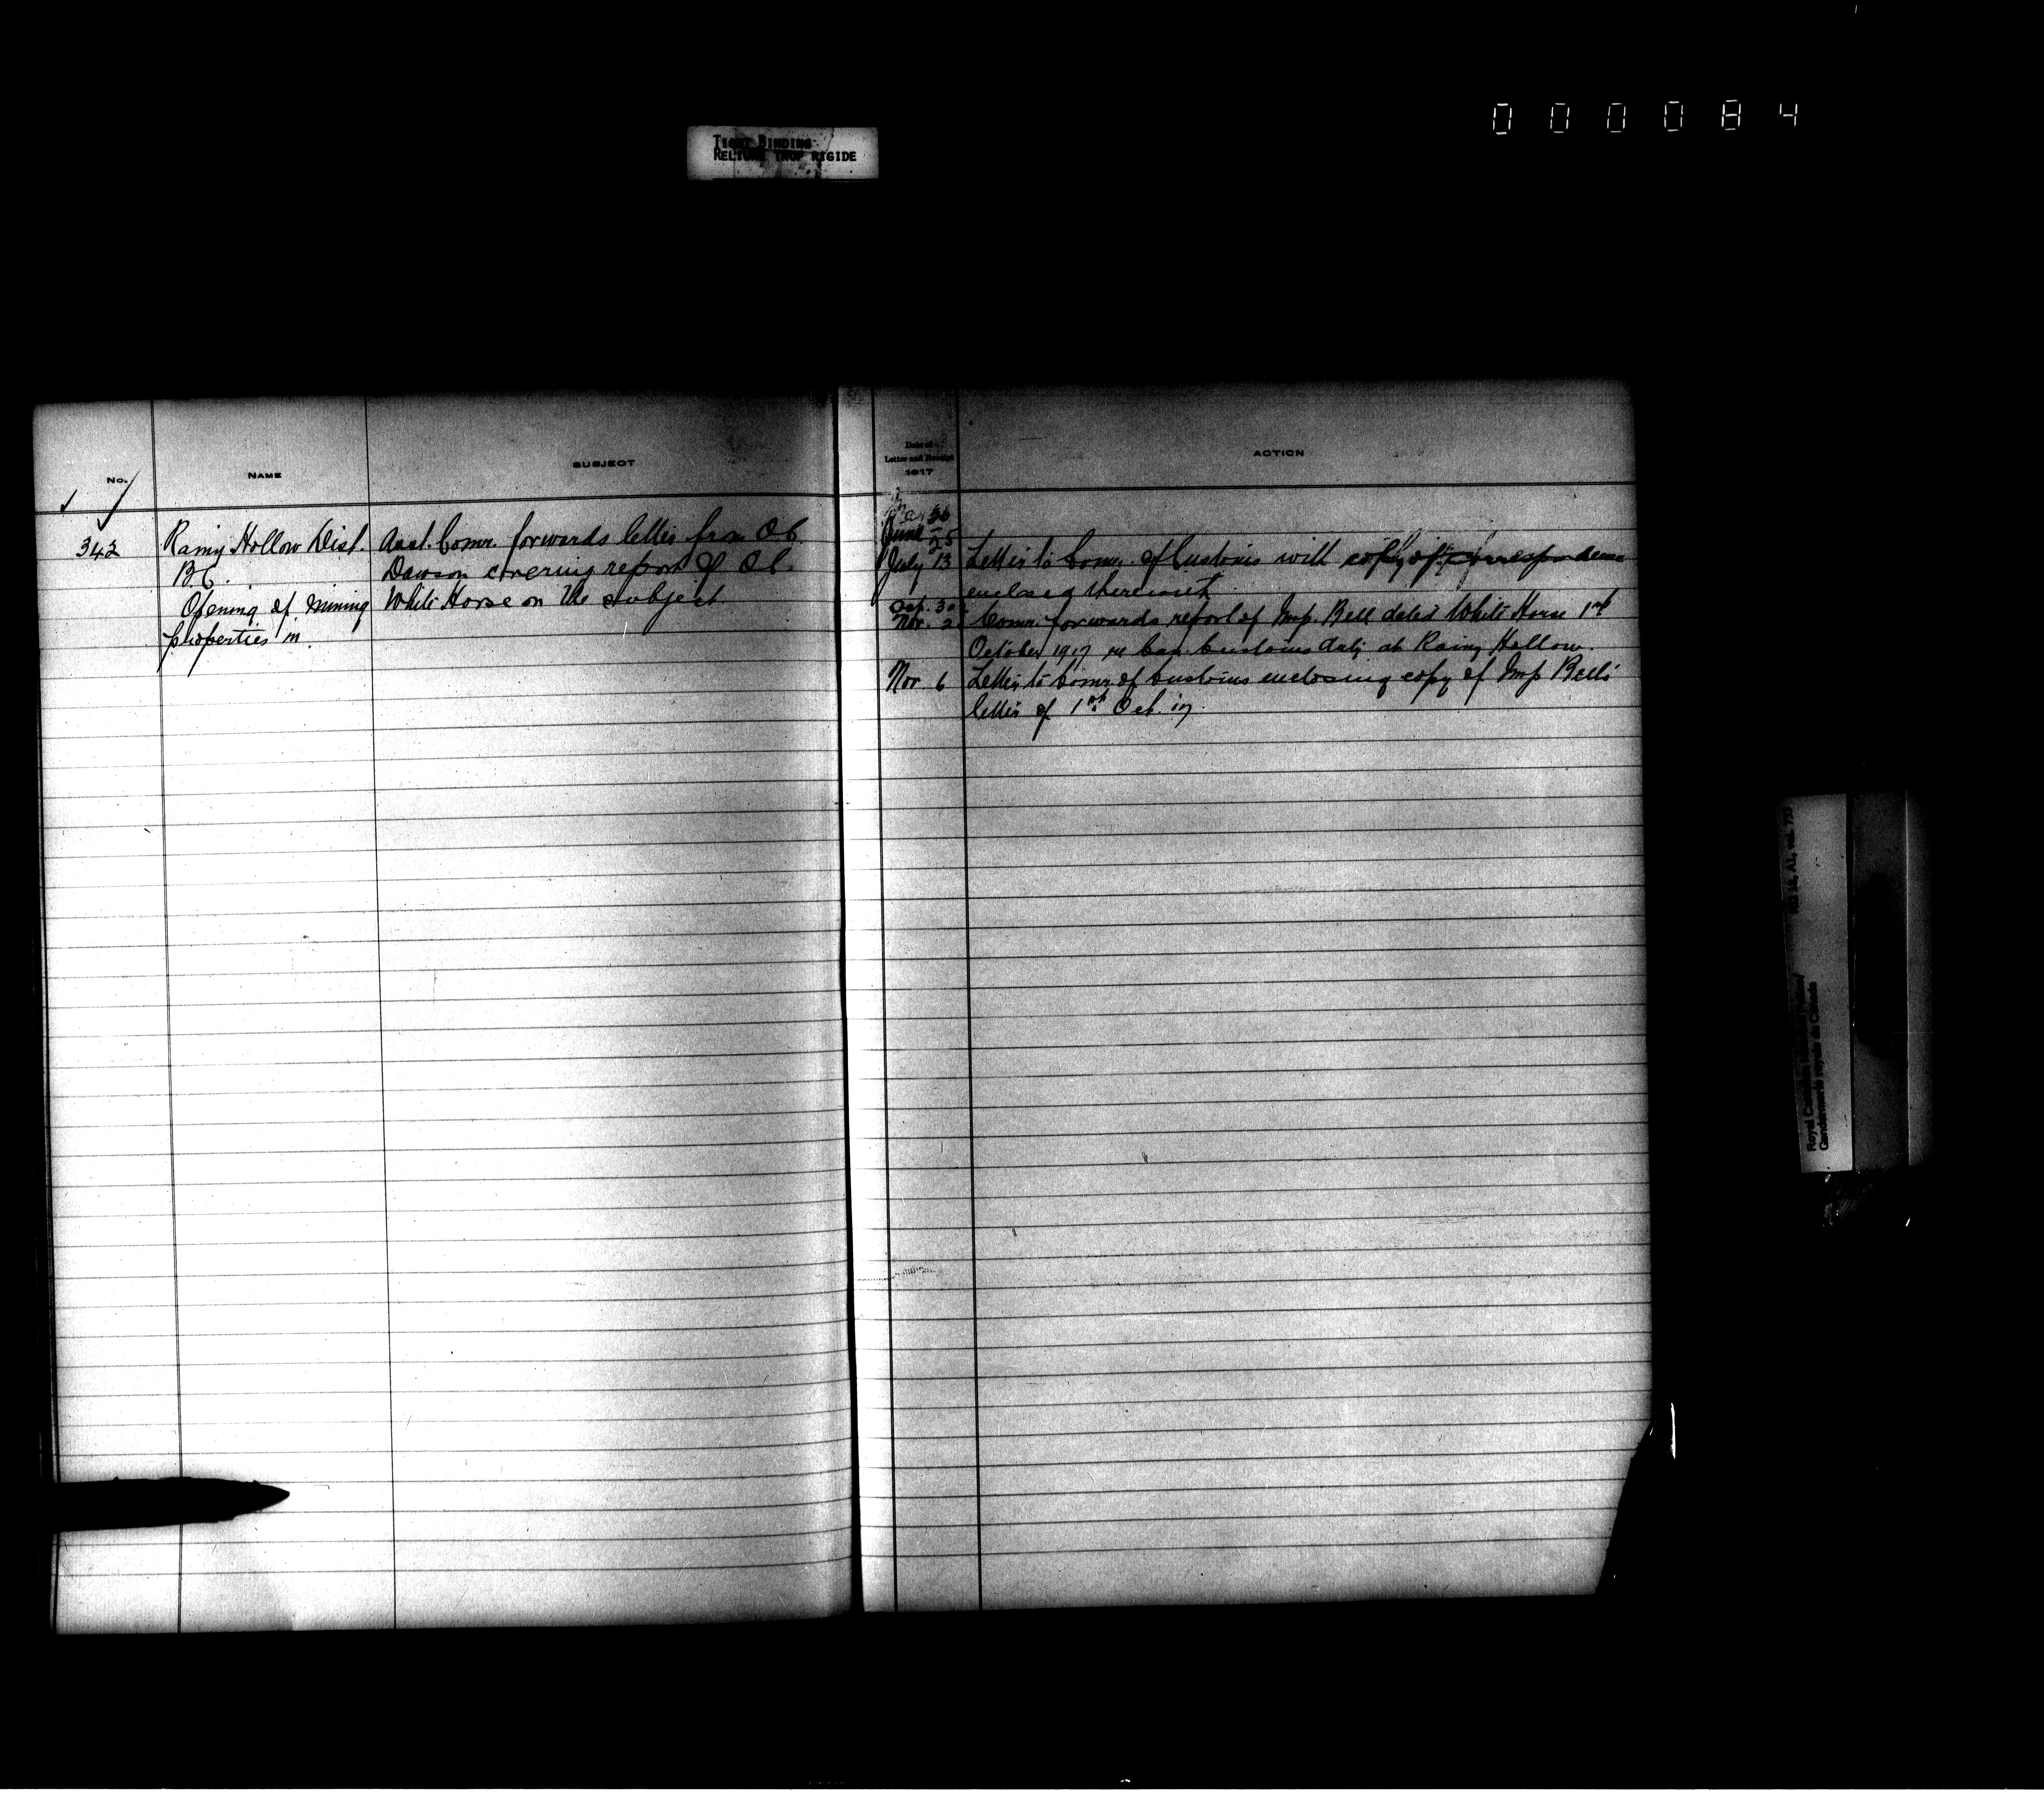 000084
TIGHT BINDING
RELIURE TROP RIGIDE
No. NAME SUBJECT
342 Rainy Hollow Dist. Asst. Comr. forwards letter from O.C.
B.C. Dawson covering report of O.C.
Opening of mining White Horse on the subject.
properties in
Date of
Letter and Receipt
1917
ACTION
June 25
July 13 Letter to Comr. of Customs with copy of correspondence
enclosed therewith
Oct. 30
Nov. 2 Comr. forwards report of Insp. Bell dated White Horse 1st
October 1917 re Can. Customs duty at Rainy Hollow.
Nov. 6 Letter to Comr. of Customs enclosing copy of Insp Bell's
letter of 1st Oct. 17
RG 18, A1, vol.
Royal Canadian Mounted Police
Gendarmerie royale du Canada